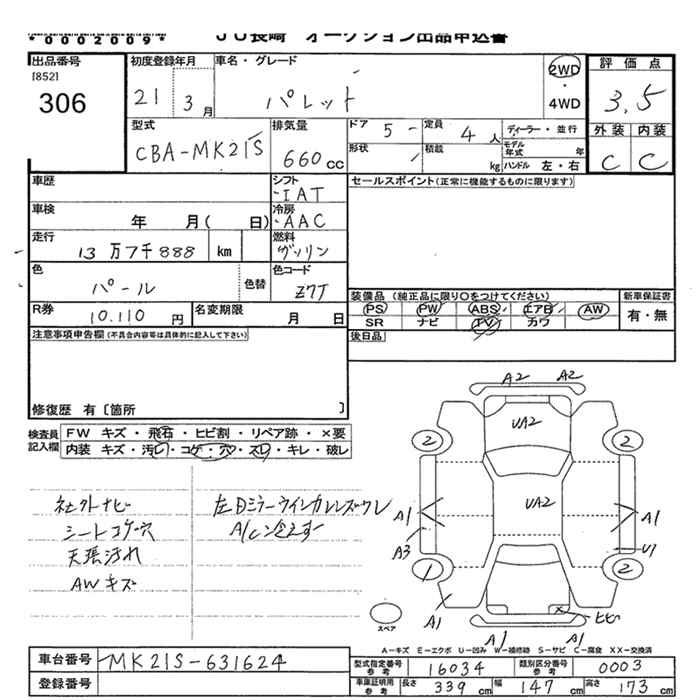 *0002009*
JU長崎 オークション出品申込書
出品番号
[852]
306
初度登録年月
21
3月
車名・グレード
パレット
2WD
・
4WD
評価点
3,5
外装 内装
C C
型式
CBA-MK21S
排気量
660cc
ドア 5
定員 4人
ディーラー・並行
形状
積載 kg
モデル年式 年
ハンドル 左・右
車歴
シフト
IAT
セールスポイント(正常に機能するものに限ります)
車検
年 月( 日)
冷房
AAC
走行
13万7千888 km
燃料
ガソリン
色
パール
色替
色コード
Z7T
R券
10.110円
名変期限
月 日
装備品 (純正品に限り○をつけてください)
PS PW ABS エアB AW
SR ナビ TV カワ
新車保証書
有・無
後日品
注意事項申告欄(不具合内容等は具体的に記入して下さい)
修復歴 有〔箇所 〕
検査員記入欄
FW キズ・飛石・ヒビ割・リペア跡・×要
内装 キズ・汚レ・コゲ・穴・スレ・キレ・破レ
社外ナビ
シートコゲ穴
天張汚れ
AWキズ
左ドミラーウインカーレンズワレ
A/C冷えず
A2 A2
UA2
2 2
UA2
A1 A1
A3 U1
1 2
A1
ヒビ
A1 A1
スペア
A-キズ E-エクボ U-凹み W-補修跡 S-サビ C-腐食 XX-交換済
車台番号
MK21S-631624
登録番号
型式指定番号 参考
16034
類別区分番号 参考
0003
車庫証明用 参考
長さ 339cm
幅 147cm
高さ 173cm